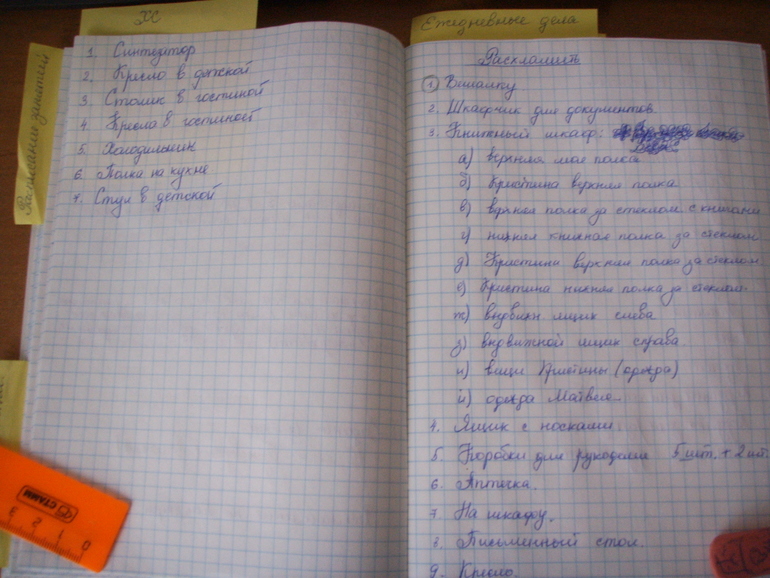 ХС
Ежедневные дела
Расписание занятий
1. Синтезатор
2. Кресло в детской
3. Столик в гостиной
4. Кресла в гостиной
5. Холодильник
6. Полка на кухне
7. Стул в детской
Расхламить
1. Вешалку
2. Шкафчик для документов
3. Книжный шкаф:
а) верхняя моя полка
б) Кристина верхняя полка
в) верхняя полка за стеклом с книгами
г) нижняя книжная полка за стеклом
д) Кристина верхняя полка за стеклом
е) Кристина нижняя полка за стеклом
ж) выдвижн ящик слева
з) выдвижной ящик справа
и) вещи Кристины (одежда)
й) одежда Матвея
4. Ящик с носками
5. Коробки для рукоделия 5 шт. + 2 шт.
6. Аптечка.
7. На шкафу.
8. Письменный стол.
9. Кресло
СТАММ
3 2 1 0